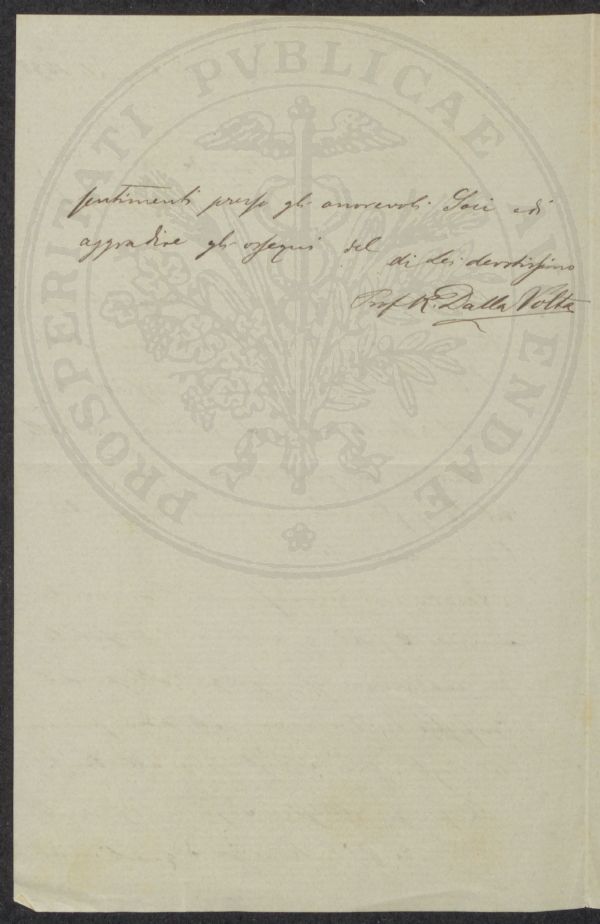 PROSPERITATI PVBLICAE AVGENDAE
sentimenti presso gli onorevoli Soci e di
aggradire gli ossequi del
di Lei devotissimo
Prof R. Dalla Volta